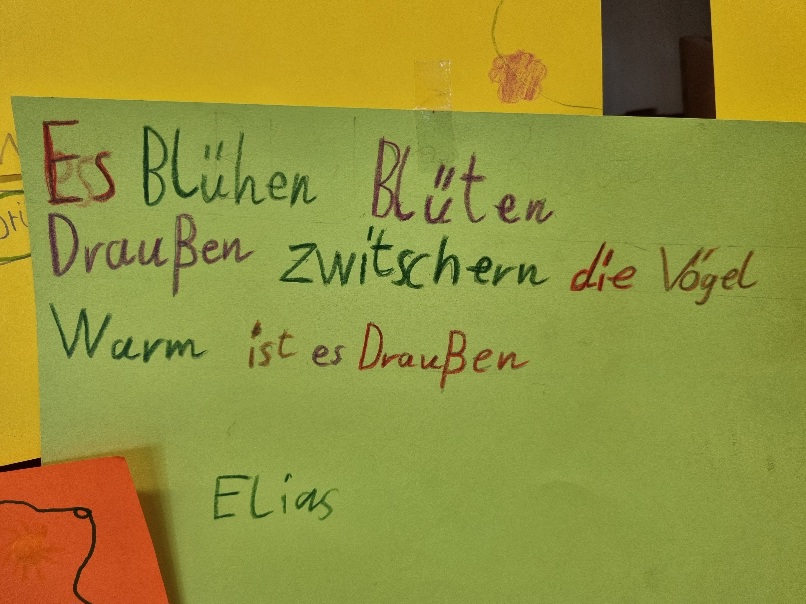 Es Blühen Blüten
Draußen zwitschern die Vögel
Warm ist es Draußen
Elias